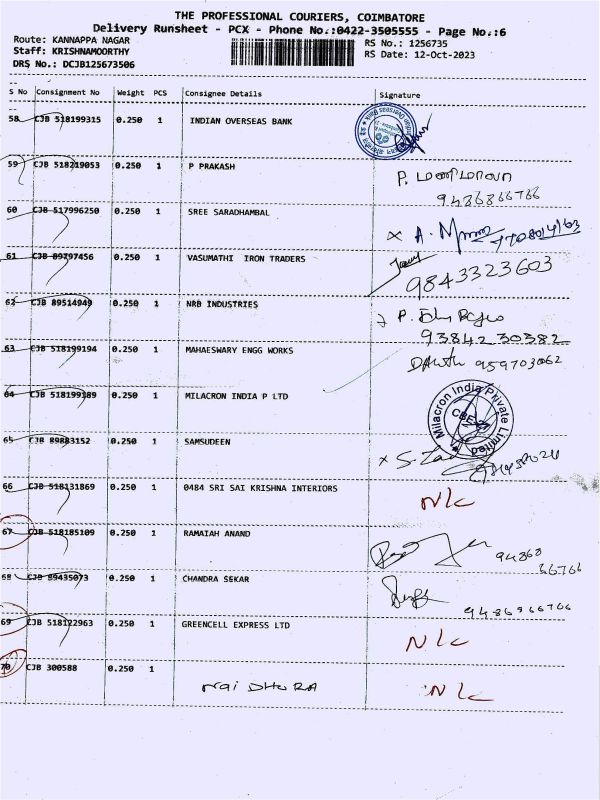 THE PROFESSIONAL COURIERS, COIMBATORE
Delivery Runsheet - PCX - Phone No.:0422-3505555 - Page No.:6
Route: KANNAPPA NAGAR
Staff: KRISHNAMOORTHY
DRS No.: DCJB125673506
RS No.: 1256735
RS Date: 12-Oct-2023
S No Consignment No Weight PCS Consignee Details Signature
58 CJB 518199315 0.250 1 INDIAN OVERSEAS BANK
59 CJB 518219053 0.250 1 P PRAKASH P.
9486866766
60 CJB 517996250 0.250 1 SREE SARADHAMBAL x A.
61 CJB 89797456 0.250 1 VASUMATHI IRON TRADERS
9843323603
62 CJB 89514949 0.250 1 NRB INDUSTRIES P.
9384230382
63 CJB 518199194 0.250 1 MAHAESWARY ENGG WORKS
64 CJB 518199189 0.250 1 MILACRON INDIA P LTD Milacron India Private Limited
65 CJB 89883152 0.250 1 SAMSUDEEN x
66 CJB 518131869 0.250 1 0484 SRI SAI KRISHNA INTERIORS N/C
67 CJB 518185109 0.250 1 RAMAIAH ANAND 94868
66766
68 CJB 89435073 0.250 1 CHANDRA SEKAR
9486966766
69 CJB 518122963 0.250 1 GREENCELL EXPRESS LTD N/C
70 CJB 300588 0.250 1 N/C